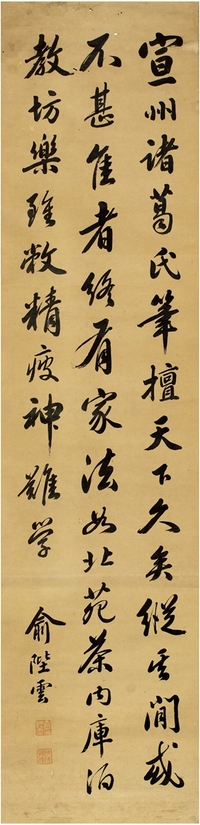 宣州諸葛氏筆擅天下久矣縱其間或
不甚佳者終有家法如北苑茶內庫酒
教坊樂雖敝精疲神難学
俞陛雲